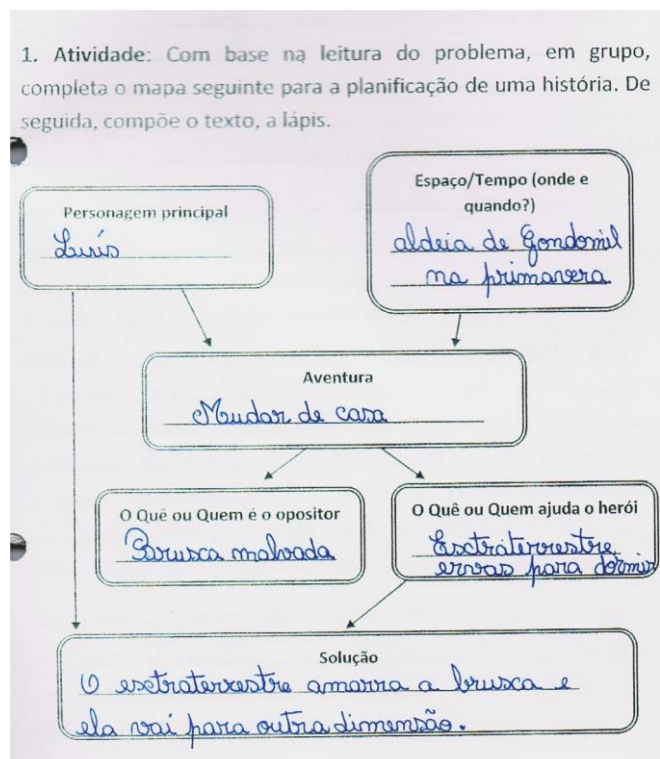 1. Atividade: Com base na leitura do problema, em grupo,
completa o mapa seguinte para a planificação de uma história. De
seguida, compõe o texto, a lápis.
Personagem principal
Luís
Espaço/Tempo (onde e
quando?)
aldeia de Gondomil
na primavera
Aventura
Mudar de casa
O Quê ou Quem é o opositor
Brusca malvada
O Quê ou Quem ajuda o herói
Esctraterrestre,
ervas para dormir
Solução
O esctraterrestre amarra a brusca e
ela vai para outra dimensão.